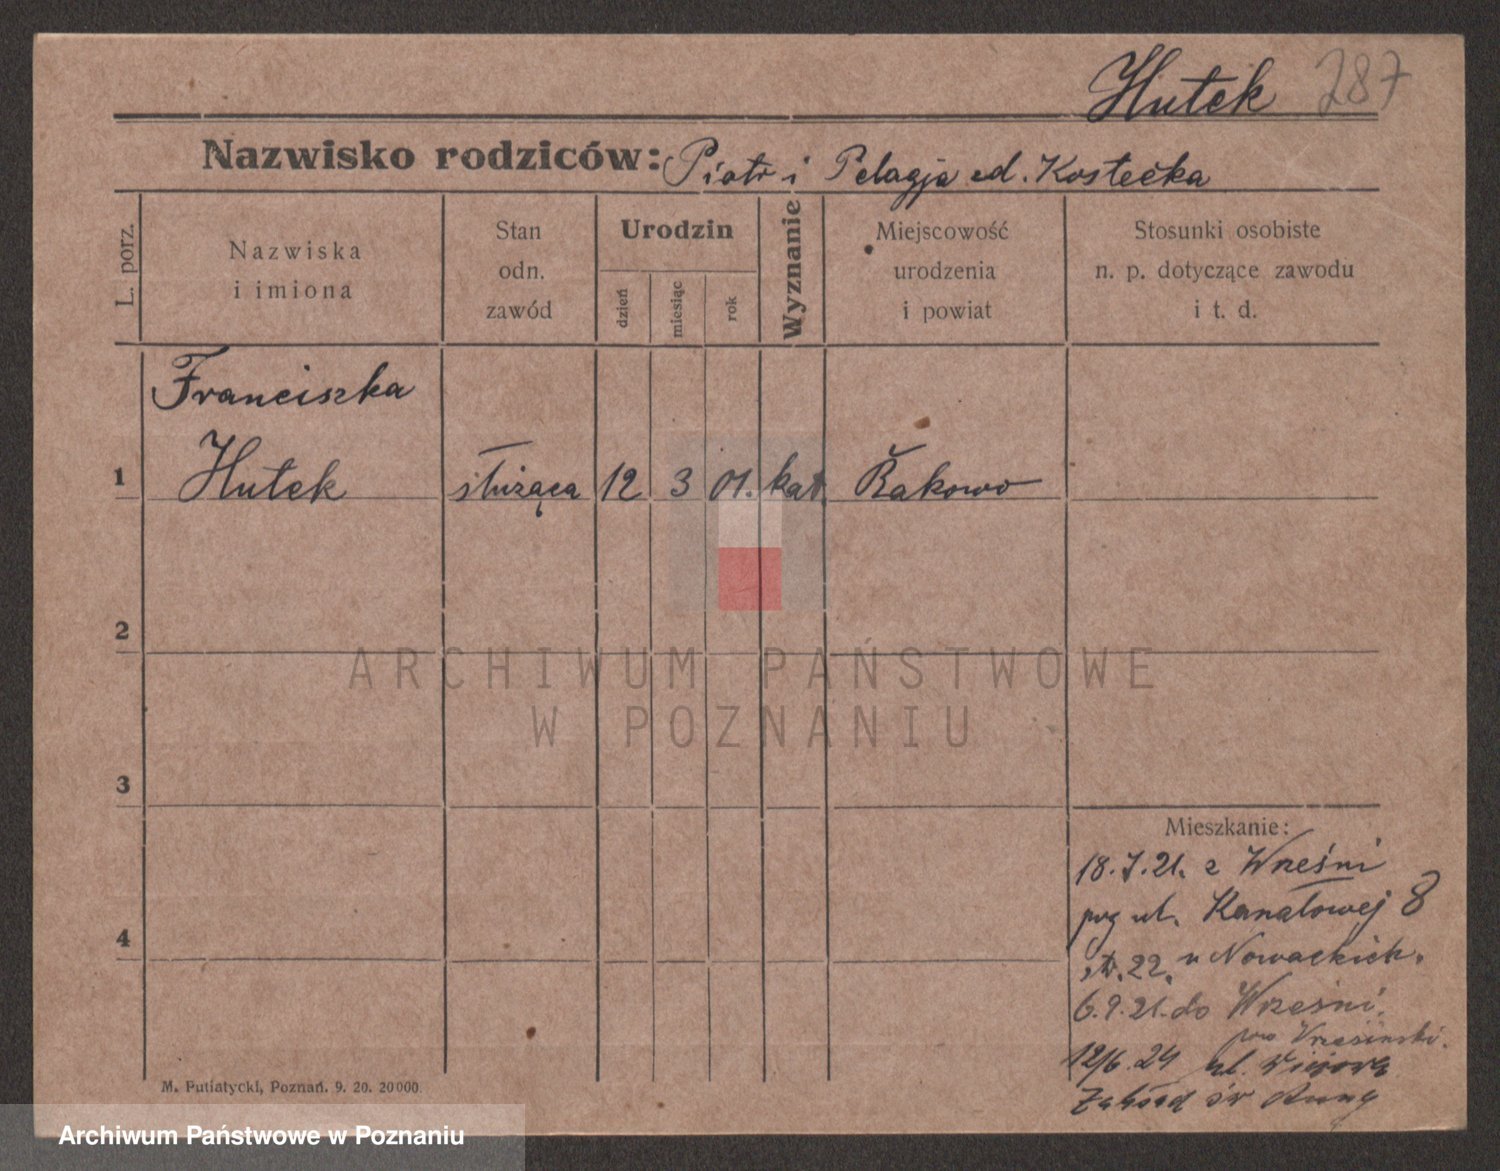 Hutek 287
Nazwisko rodziców: Piotr i Pelagja Kostecka
L. porz.
Nazwiska
i imiona
Stan
odn.
zawód
Urodzin
dzień
miesiąc
rok
Wyznanie
Miejscowość
urodzenia
i powiat
Stosunki osobiste
n. p. dotyczące zawodu
i t. d.
Franciszka
1 Hutek służąca 12 3 01. kat. Rakowo
2
3
4
ARCHIWUM PAŃSTWOWE
W POZNANIU
Mieszkanie:
18.7.21. z Wrześni
ul. Kanałowej 8
22. u Nowackich.
6.9.21. do Wrześni.
pow Wrzesiński.
12/6.24 ul.
Zakład św Anny
M. Putiatycki, Poznań. 9. 20. 20000.
Archiwum Państwowe w Poznaniu